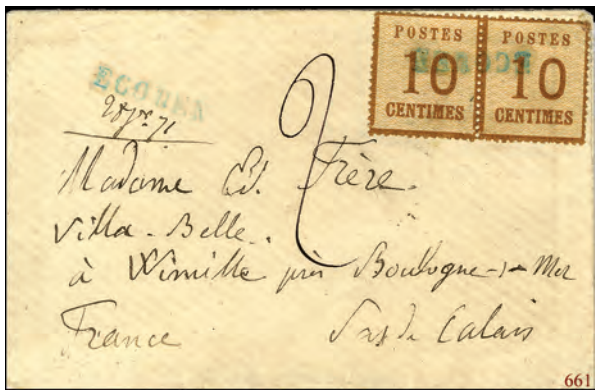 POSTES POSTES
10 10
CENTIMES CENTIMES
ECOUEN
ECOUEN
2
Madame Ed. Frère
Villa-Belle.
à Wimille près Boulogne-s-Mer
France Pas de Calais
661